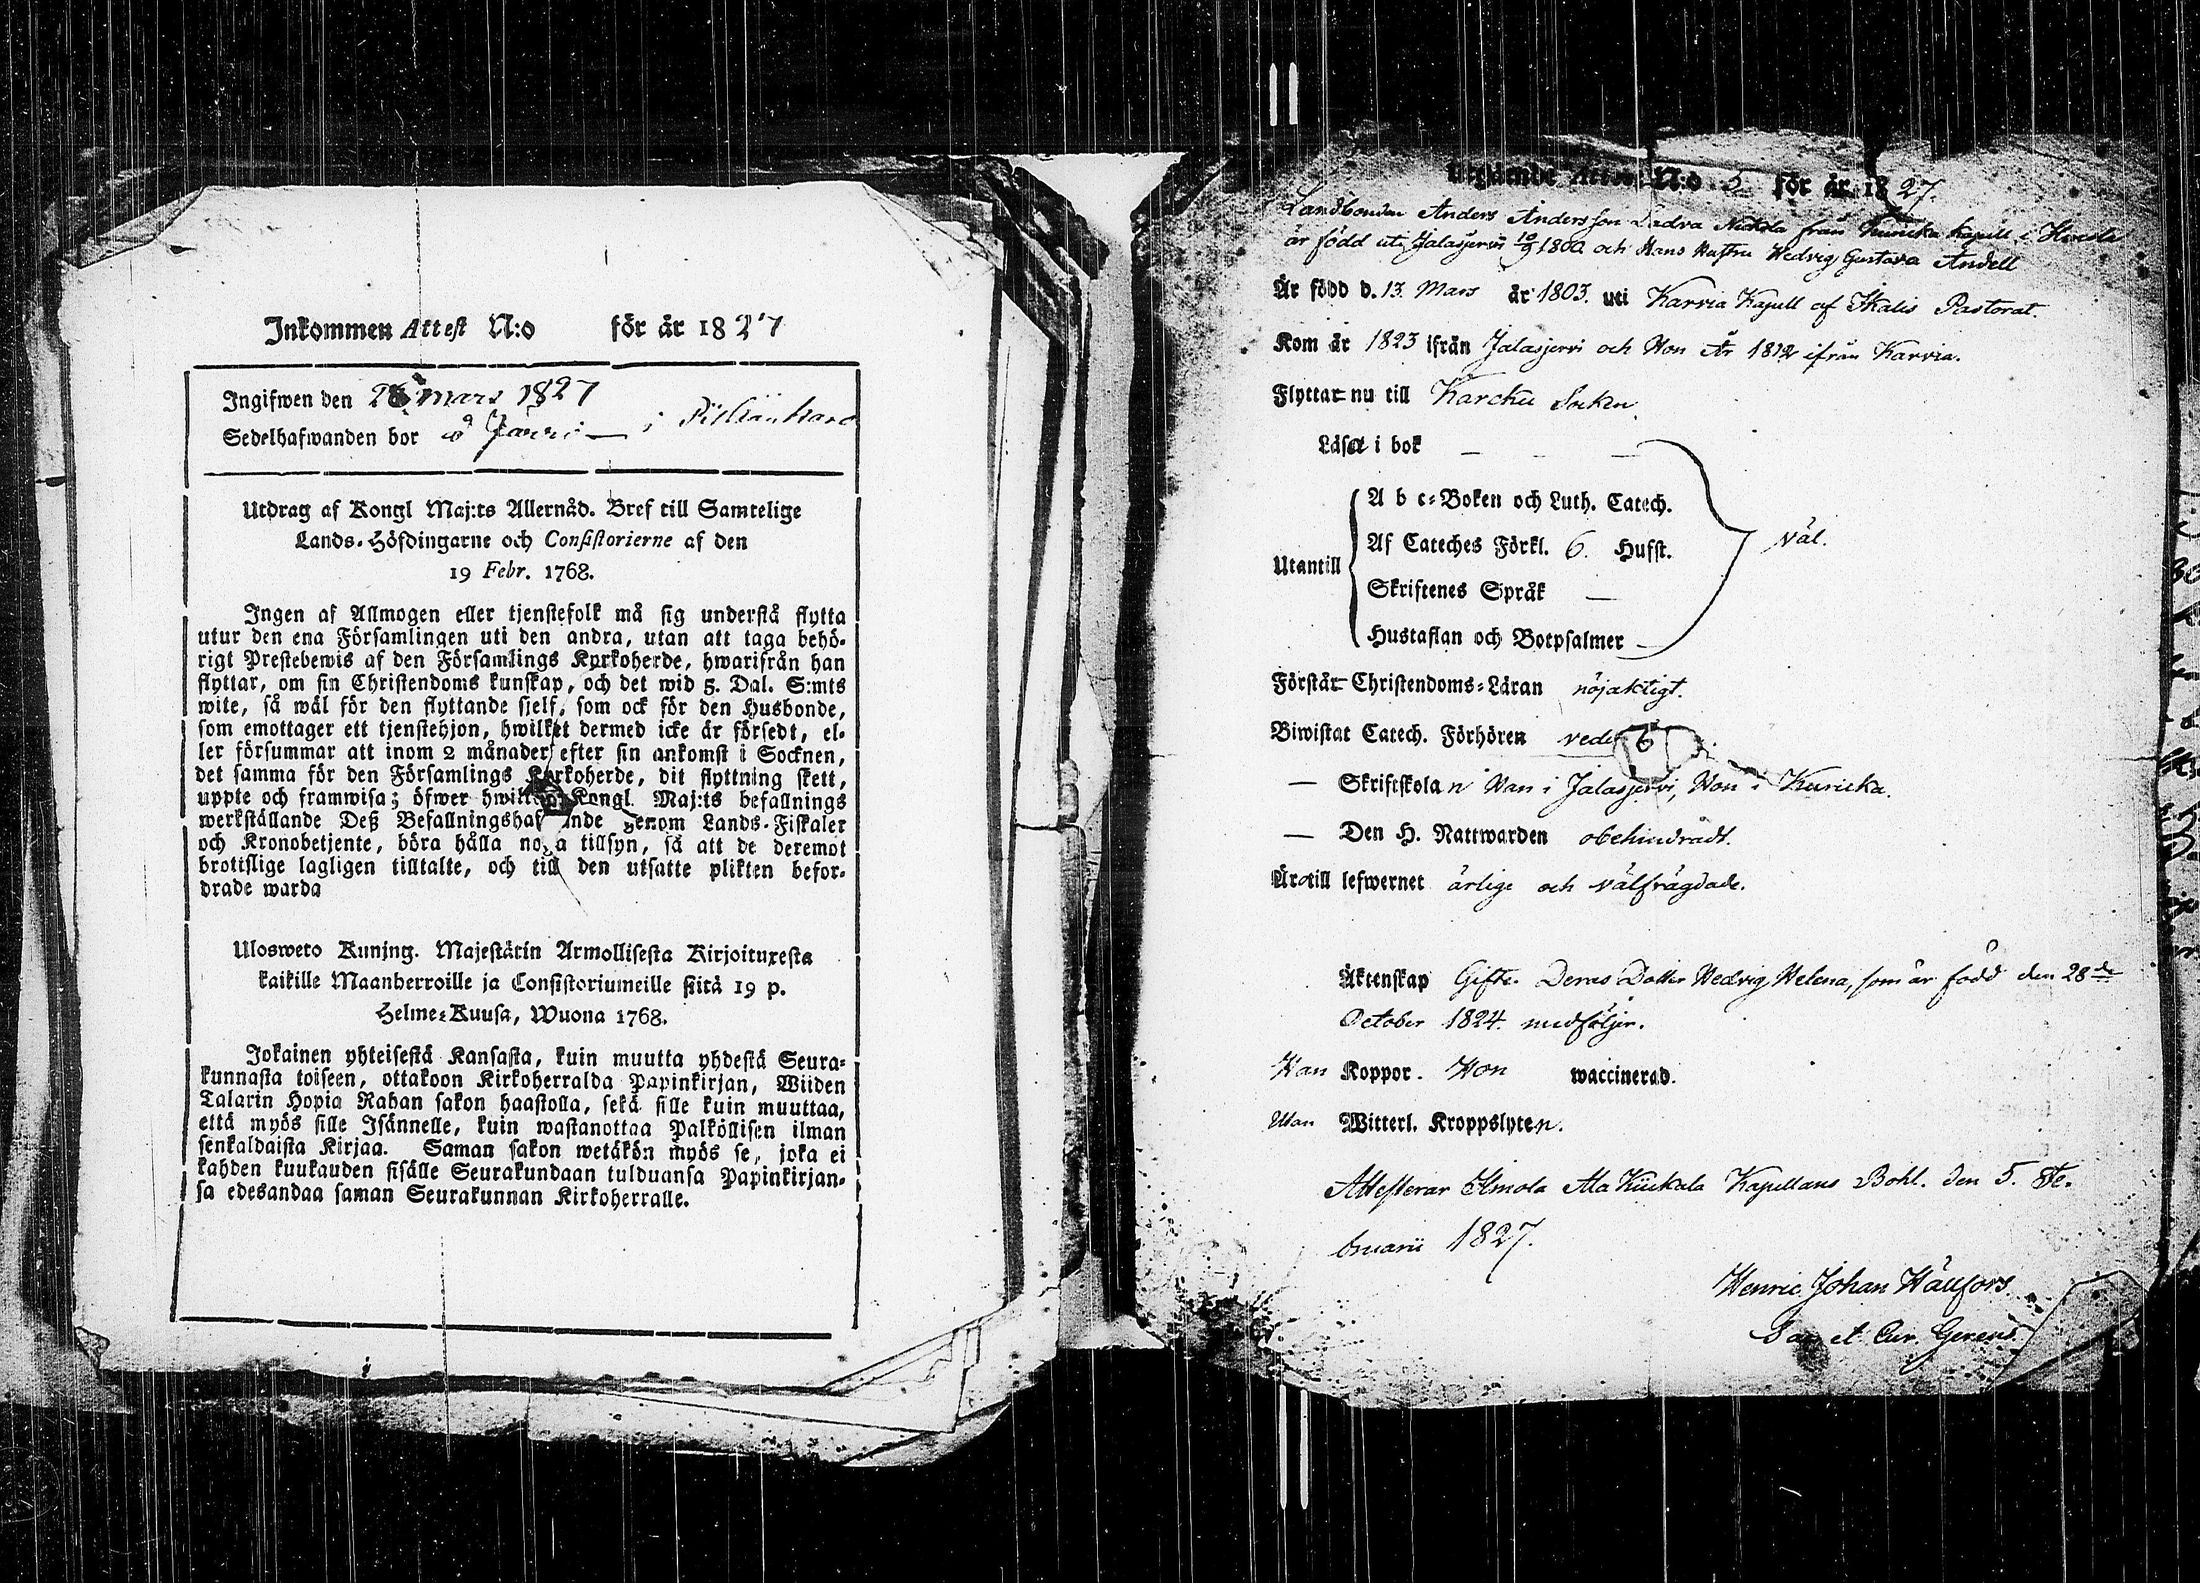 Inkommen Attest N:o för år 1827
Ingifwen den Mars 1827
Sedelhafwanden bor å Jarri i
Utdrag af Kongl Maj:ts Allernåd. Bref till Samtelige
Lands-Höfdingarne och Consistorierne af den
19 Febr. 1768.
Ingen af Allmogen eller tjenstefolk må sig understå flytta
utur den ena Församlingen uti den andra, utan att taga behö-
rigt Prestebewis af den Församlings Kyrkoherde, hwarifrån han
flyttar, om sin Christendoms kunskap, och det wid 5. Dal. S:mts
wite, så wäl för den flyttande sielf, som ock för den Husbonde,
som emottager ett tjenstehjon, hwilket dermed icke är försedt, el-
ler försummar att inom 2 månader efter sin ankomst i Socknen,
det samma för den Församlings Kyrkoherde, dit flyttning skett,
uppte och framwisa; öfwer hwilket Kongl. Maj:ts befallnings
werkställande Deß Befallningshafwande genom Lands-Fiskaler
och Kronobetjente, böra hålla noga tillsyn, så att de deremot
brottslige lagligen tilltalte, och till den utsatte plikten befor-
drade warda
Ulosweto Kuning. Majestätin Armollisesta Kirjoituxesta
kaikille Maanherroille ja Consistoriumeille siitä 19 p.
Helme-Kuusa, Wuona 1768.
Jokainen yhteisestä Kansasta, kuin muutta yhdestä Seura-
kunnasta toiseen, ottakoon Kirkoherralda Papinkirjan, Wiiden
Talarin Hopia Rahan sakon haastolla, sekä sille kuin muuttaa,
että myös sille Isännelle, kuin wastanottaa Palköllisen ilman
senkaldaista Kirjaa. Saman sakon wetäkön myös se, joka ei
kahden kuukauden sisälle Seurakundaan tulduansa Papinkirjan-
sa edesandaa saman Seurakunnan Kirkoherralle.
Utgående Attest N:o 5 för år 1827.
Landbonden Anders Andersson Ladva Nickola från Kuricka Kapell i
är född uti Jalasjervi 10/9 1800. och Hans Hustru Hedvig Gustava Andell
Är född d. 13. Mars år 1803. uti Karvia Kapell af Ikalis Pastorat.
Kom år 1823 ifrån Jalasjervi och Hon År 1812 ifrån Karvia.
Flyttar nu till Karcku Socken.
Läsa i bok —
A b c-Boken och Luth. Catech.
Af Cateches Förkl. 6. Hufst. väl.
Utantill
Skriftenes Språk —
Hustaflan och Botpsalmer —
Förstår Christendoms-Läran nöjaktigt.
Biwistat Catech. Förhören
— Skriftskolan Han i Jalasjervi, Hon i Kuricka.
— Den H. Nattwarden obehindradt.
Äro till lefwernet ärlige och välfrägdade.
Äktenskap Gifte. Deras Dotter Hedvig Helena, som är född den 28de
October 1824. medföljer.
Han Koppor. Hon waccinerad.
Utan Witterl. Kroppslyten.
Attesterar Ilmola Ala Kückala Kapellans Bohl. den 5. Fe-
bruarii 1827.
Henric Johan Hällfors.
Sac. et Cur. Gerens.